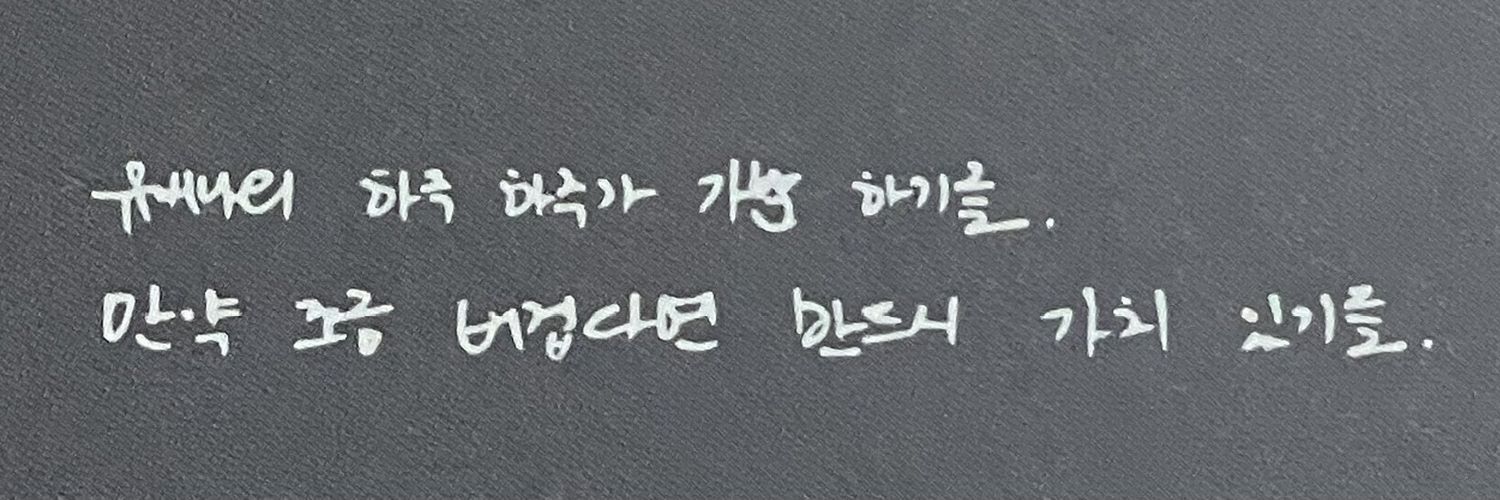 유애나의 하루 하루가 가뿐 하기를.
만약 조금 버겁다면 반드시 가치 있기를.